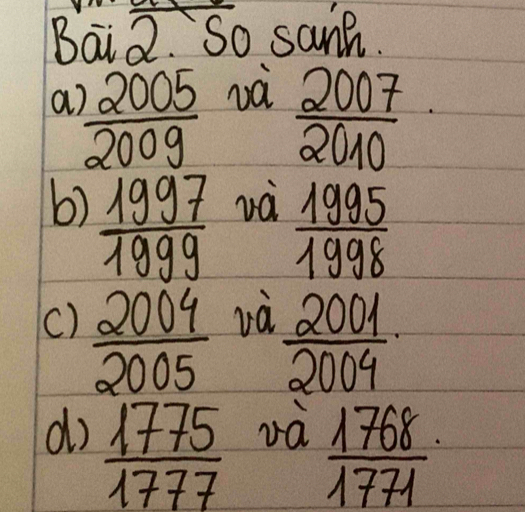 Bài 2. So sánh.
a) 2005/2009 và 2007/2010.
b) 1997/1999 và 1995/1998
c) 2004/2005 và 2001/2004.
d) 1775/1777 và 1768/1771.